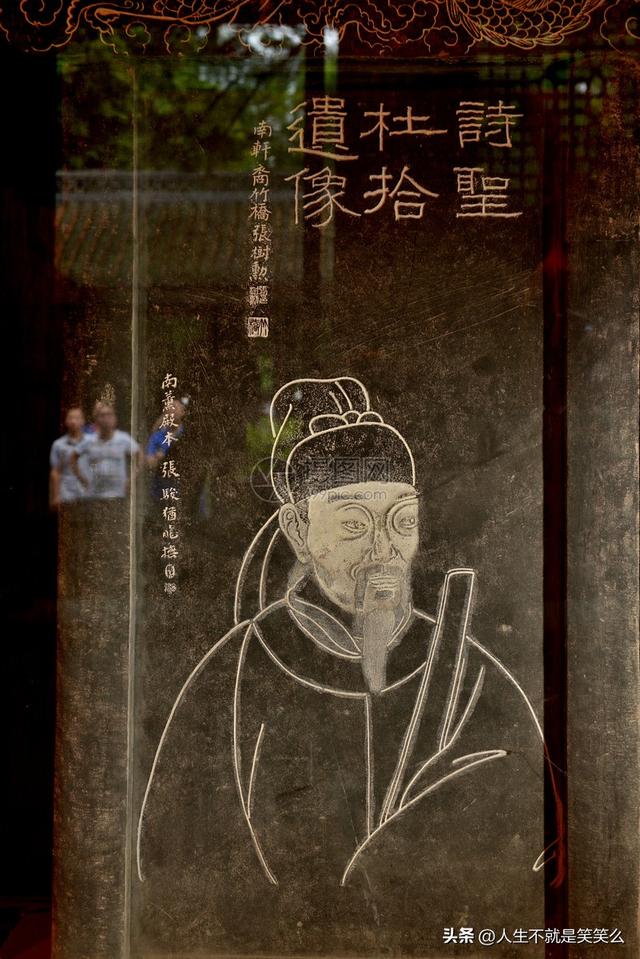 詩聖
杜拾
遺像
南軒裔竹橋張樹勲
南薰殿本 張駿猶
摄图网
头条 @人生不就是笑笑么